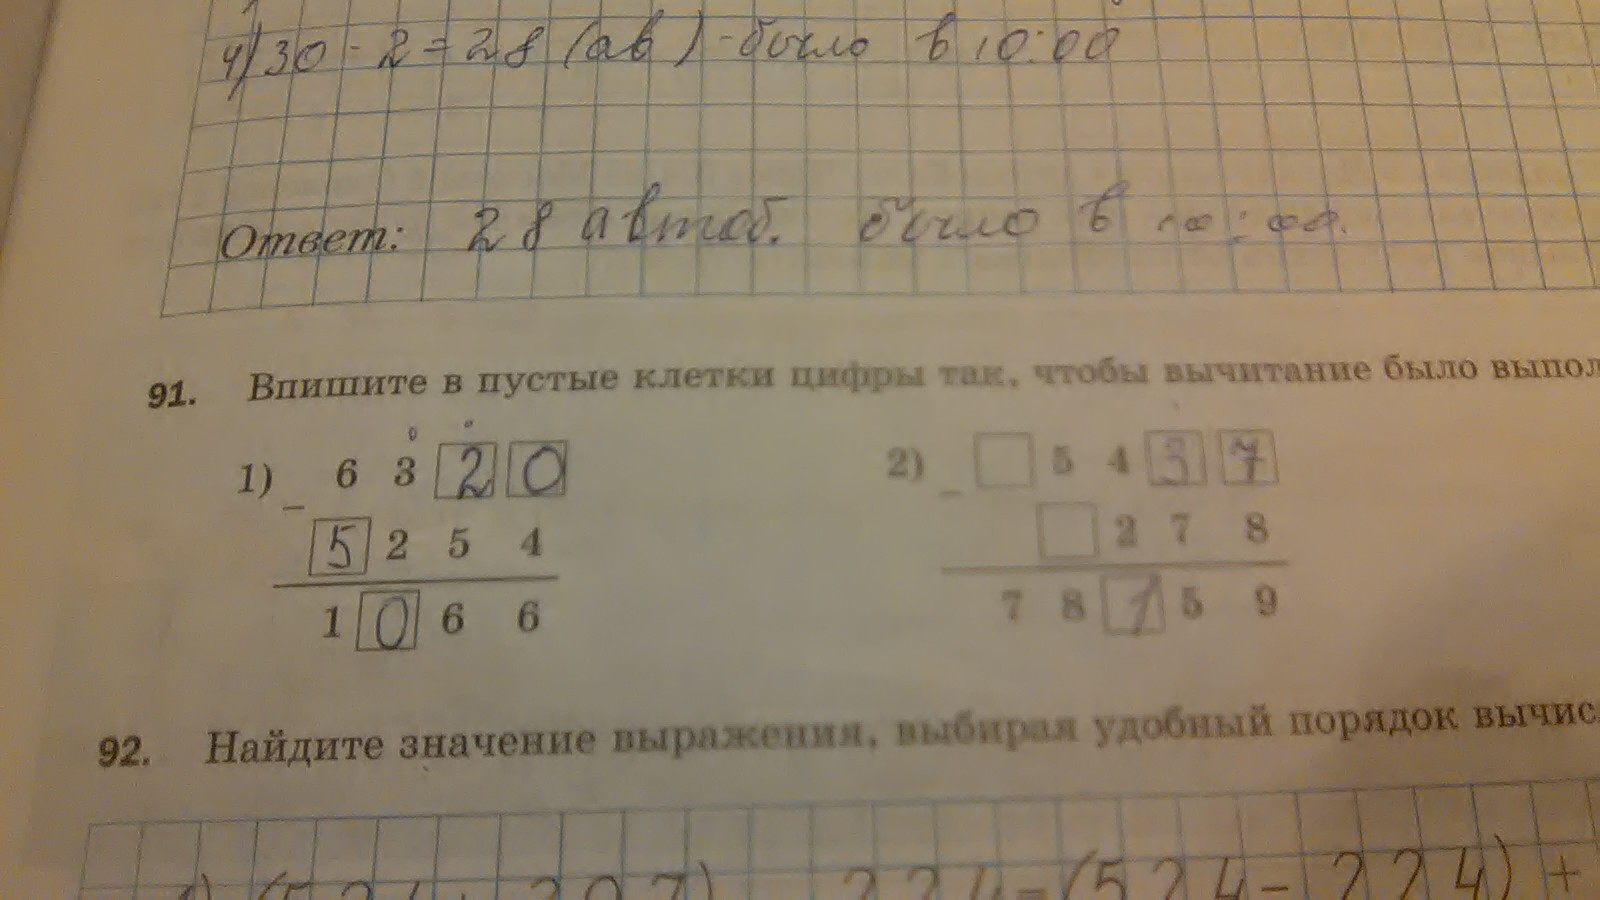 4) 30 - 2 = 28 (ав) - было в 10:00
Ответ: 28 автоб. было в 10:00.
91. Впишите в пустые клетки цифры так, чтобы вычитание было выпол
1) 6 3 2 0
- 5 2 5 4
1 0 6 6
2) 5 4 3 7
- 2 7 8
7 8 1 5 9
92. Найдите значение выражения, выбирая удобный порядок вычис
224 = (524 - 224) +